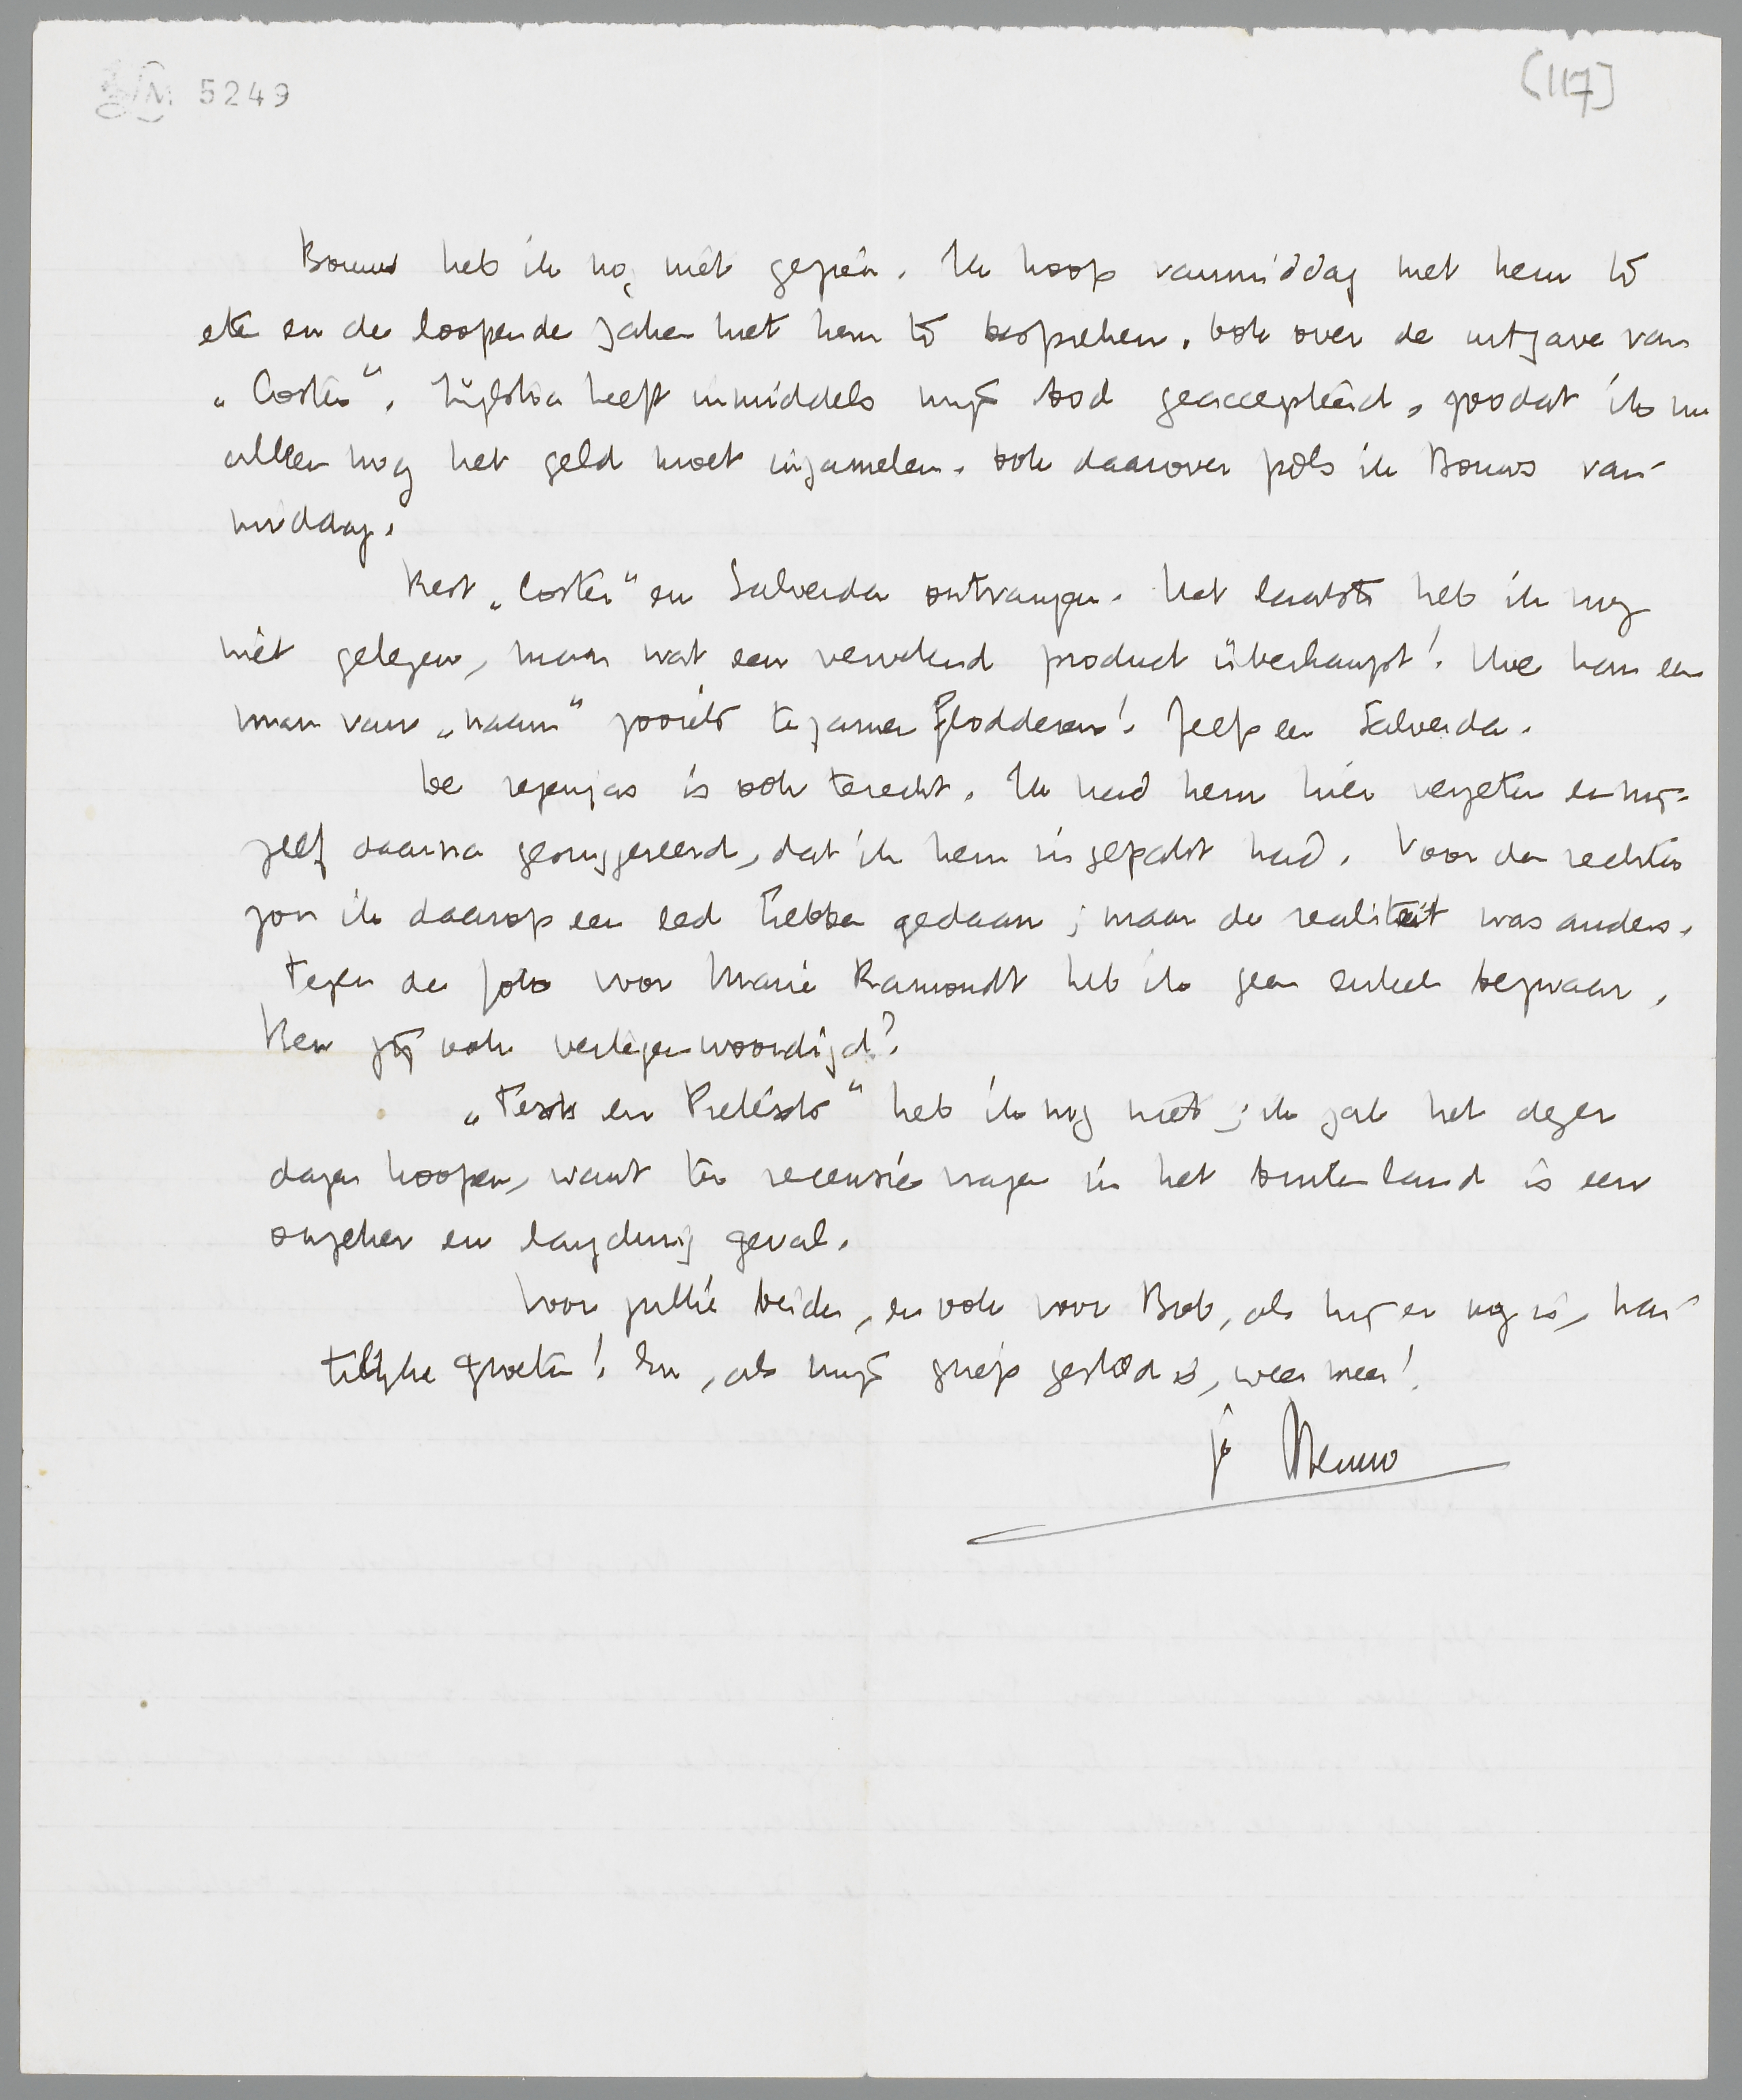 LM 5249
[117]
Bouws heb ik nog niet gezien. Ik hoop vanmiddag met hem te
eten en de loopende zaken met hem te bespreken, ook over de uitgave van
„Coster". Zijlstra heeft inmiddels mijn bod geaccepteerd, zoodat ik nu
alleen nog het geld moet inzamelen. Ook daarover pols ik Bouws van-
middag.
Best „Coster" en Salverda ontvangen. Het laatste heb ik nog
niet gelezen, maar wat een vervelend product überhaupt! Hoe kan een
man van „naam" zooiets tezamen flodderen! Zelfs een Salverda.
De regenjas is ook terecht. Ik had hem hier vergeten en mij-
zelf daarna gesuggereerd, dat ik hem ingepakt had. Voor den rechter
zou ik daarop een eed hebben gedaan; maar de realiteit was anders.
Tegen de foto voor Marie Ramondt heb ik geen enkel bezwaar.
Ben jij ook vertegenwoordigd?
„Texts en Pretexts" heb ik nog niet; ik zal het dezer
dagen koopen, want ter recensie vragen in het buitenland is een
onzeker en langdurig geval.
Voor jullie beiden, en ook voor Bob, als hij er nog is, har-
telijke groeten! En, als mijn griep gesloopt is, weer meer!
je Menno